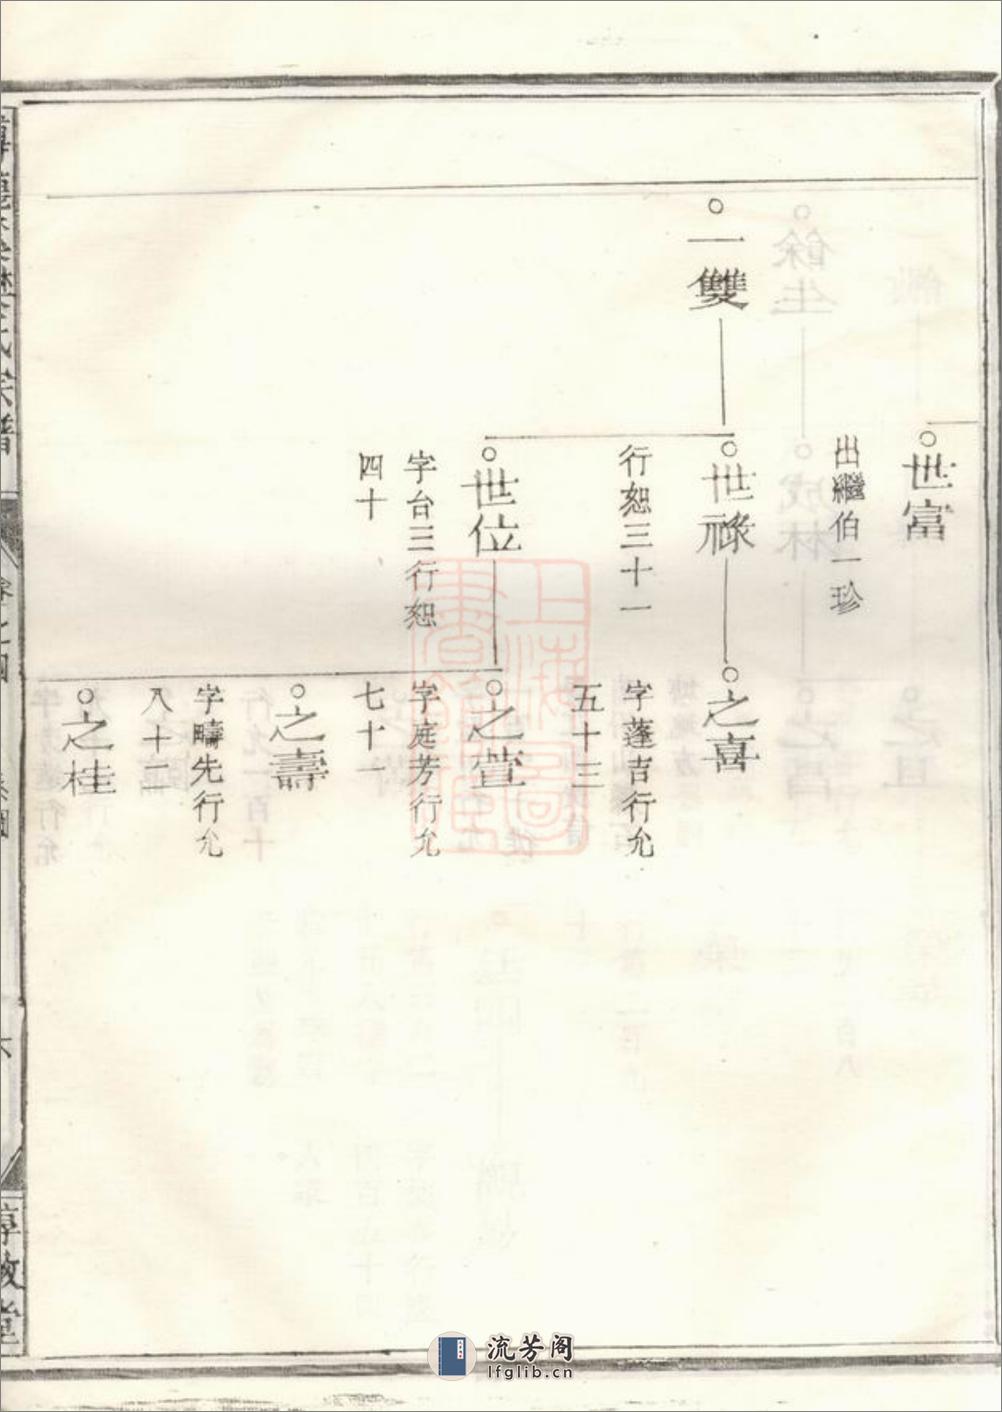 世富
出繼伯一珍
一雙
世祿
行恕三十一
世位
字台三行恕
四十
之喜
字蓬吉行允
五十三
之萱
字庭芳行允
七十一
之壽
字疇先行允
八十二
之桂
氏宗譜
卷之四
六
敦堂
上海圖書館藏
流芳阁
lfglib.cn